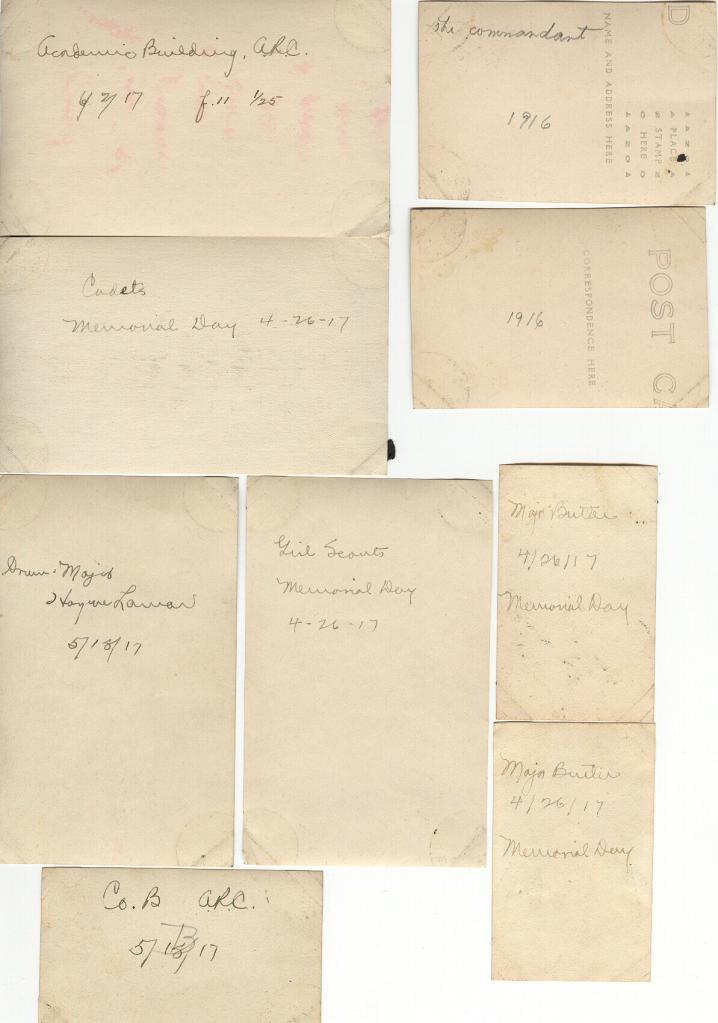 Academic Building, A.R.C.
6/2/17 f.11 1/25
the commandant
1916
NAME AND ADDRESS HERE
PLACE
STAMP
HERE
D
Cadets
Memorial Day 4-26-17
1916
CORRESPONDENCE HERE
POST CA
Drum-Major
Hayne Lamar
5/13/17
Girl Scouts
Memorial Day
4-26-17
Major Butler
4/26/17
Memorial Day
Major Butler
4/26/17
Memorial Day
Co. B A.R.C.
5/13/17